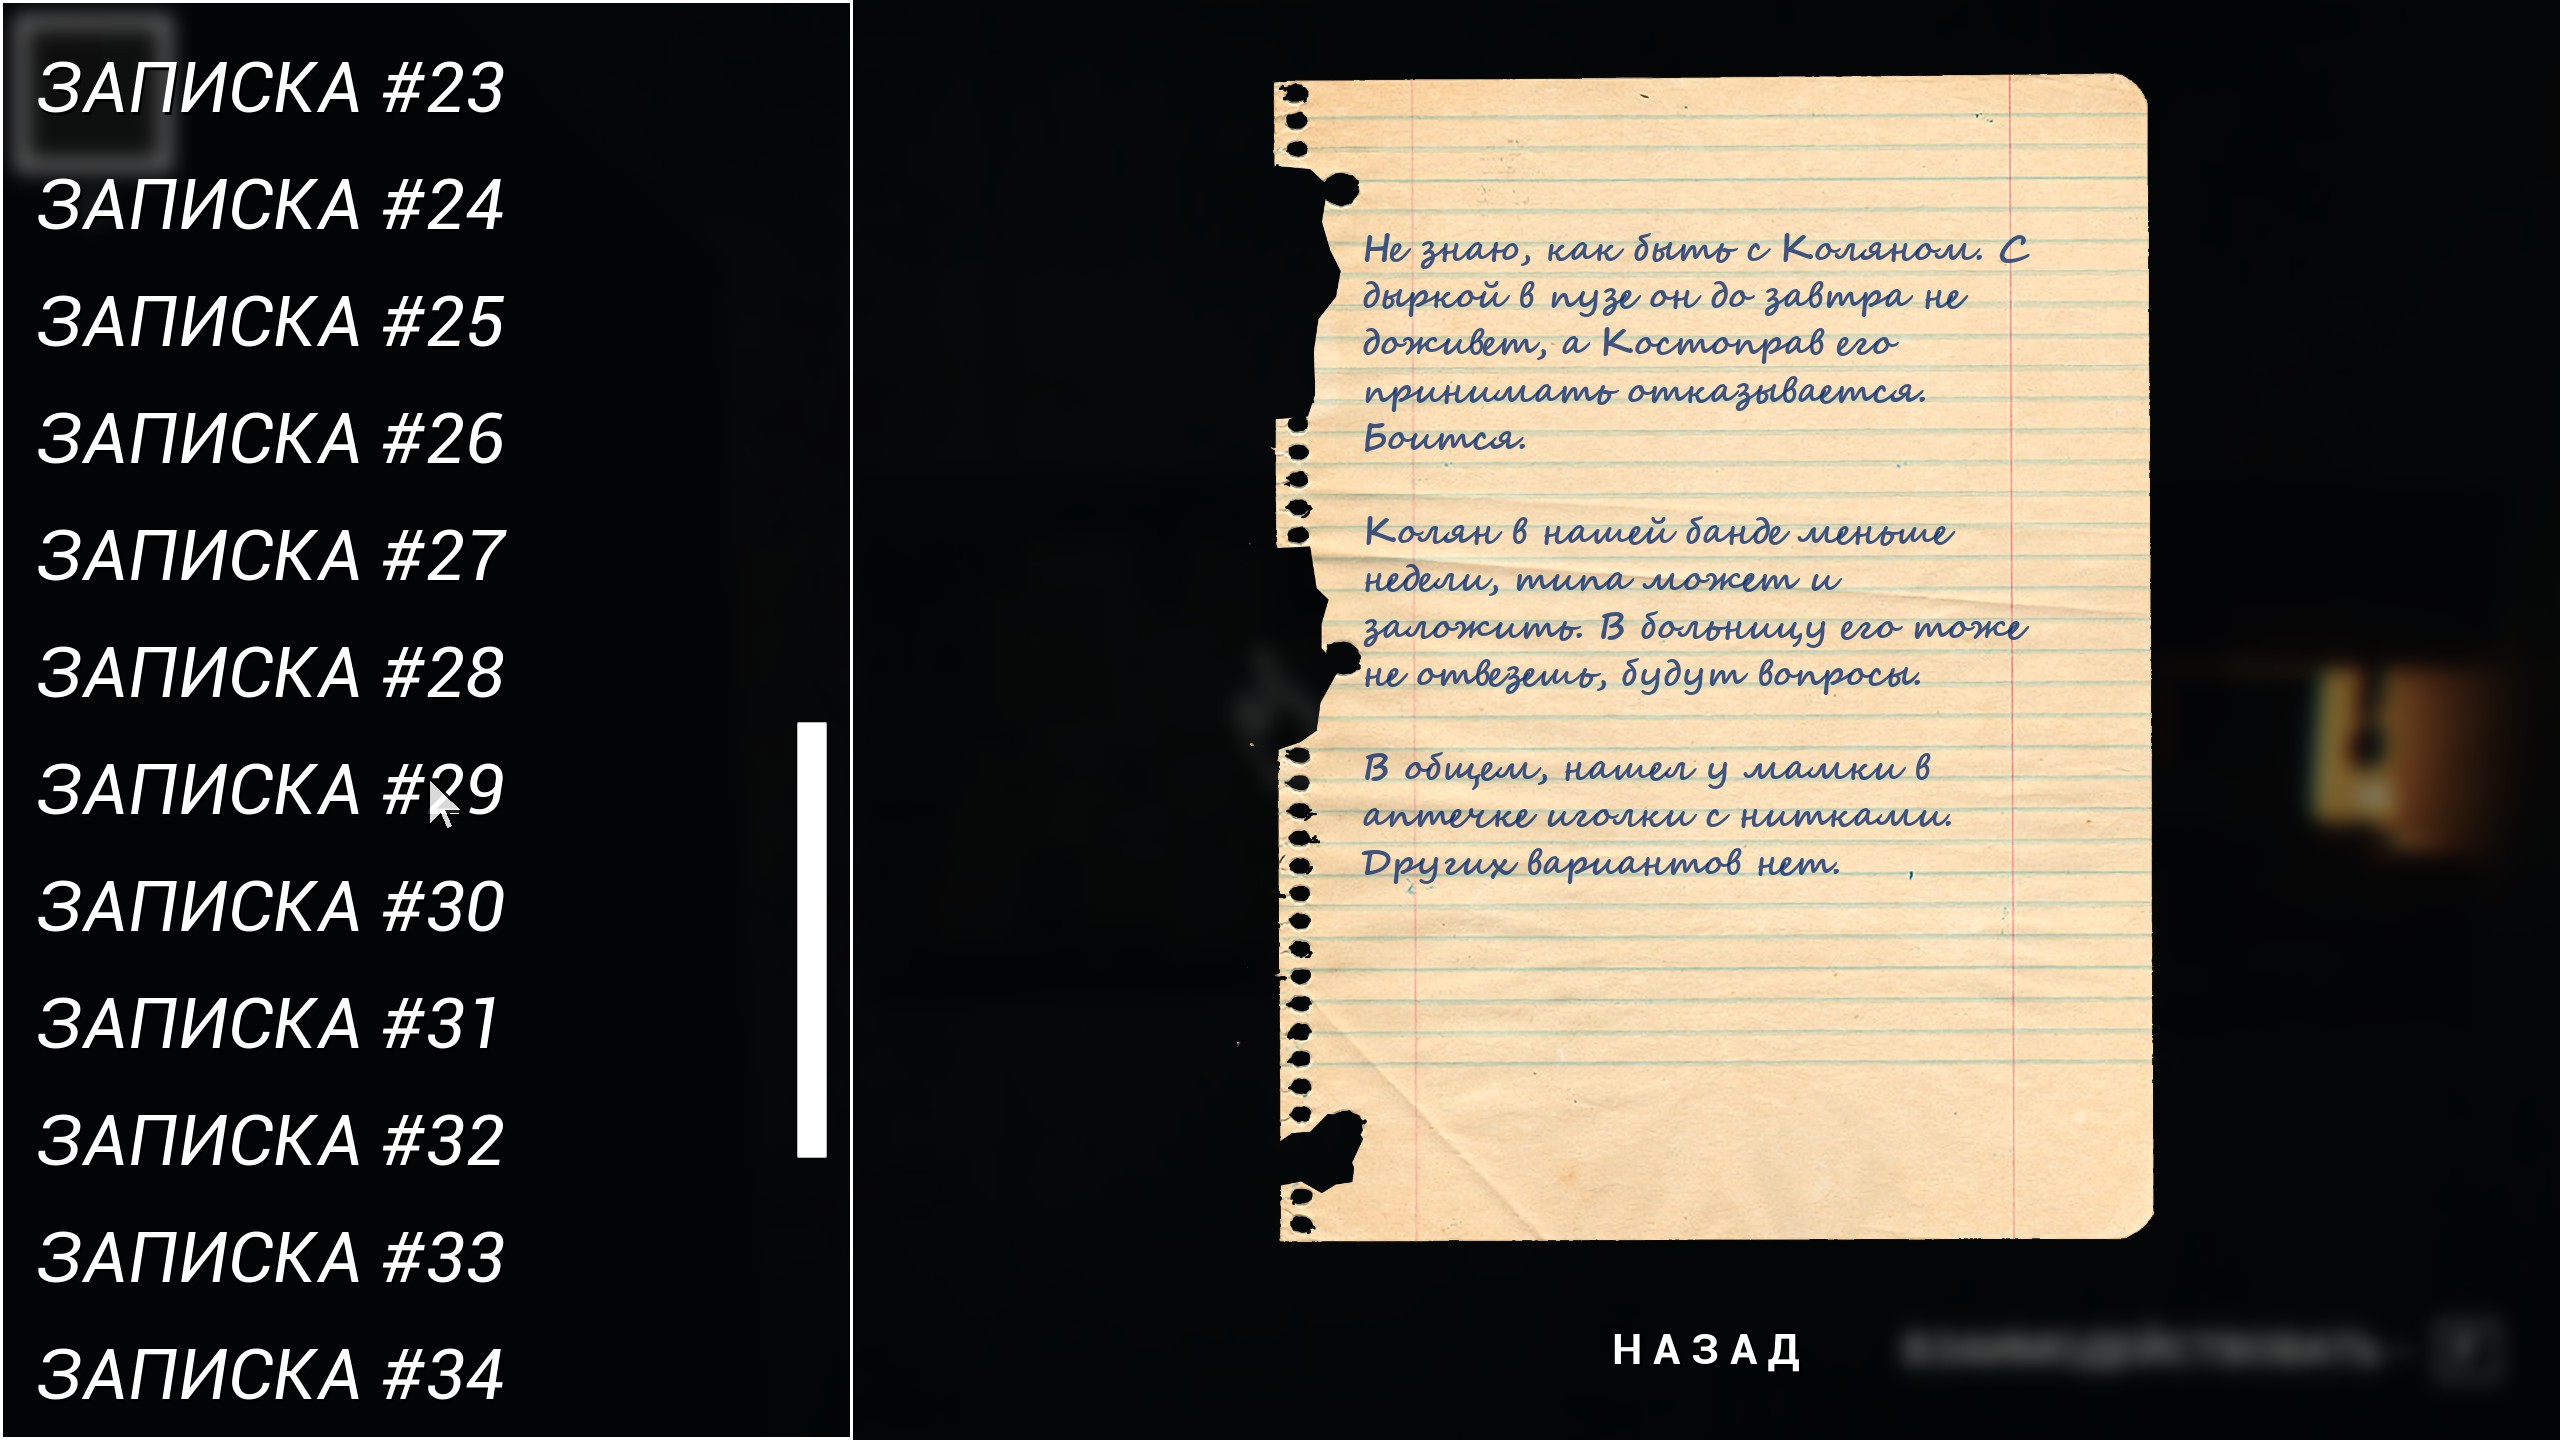 ЗАПИСКА #23
ЗАПИСКА #24
ЗАПИСКА #25
ЗАПИСКА #26
ЗАПИСКА #27
ЗАПИСКА #28
ЗАПИСКА #29
ЗАПИСКА #30
ЗАПИСКА #31
ЗАПИСКА #32
ЗАПИСКА #33
ЗАПИСКА #34
Не знаю, как быть с Коляном. С
дыркой в пузе он до завтра не
доживет, а Костоправ его
принимать отказывается.
Боится.
Колян в нашей банде меньше
недели, типа может и
заложить. В больницу его тоже
не отвезешь, будут вопросы.
В общем, нашел у мамки в
аптечке иголки с нитками.
Других вариантов нет.
НАЗАД
ВЗАИМОДЕЙСТВОВАТЬ